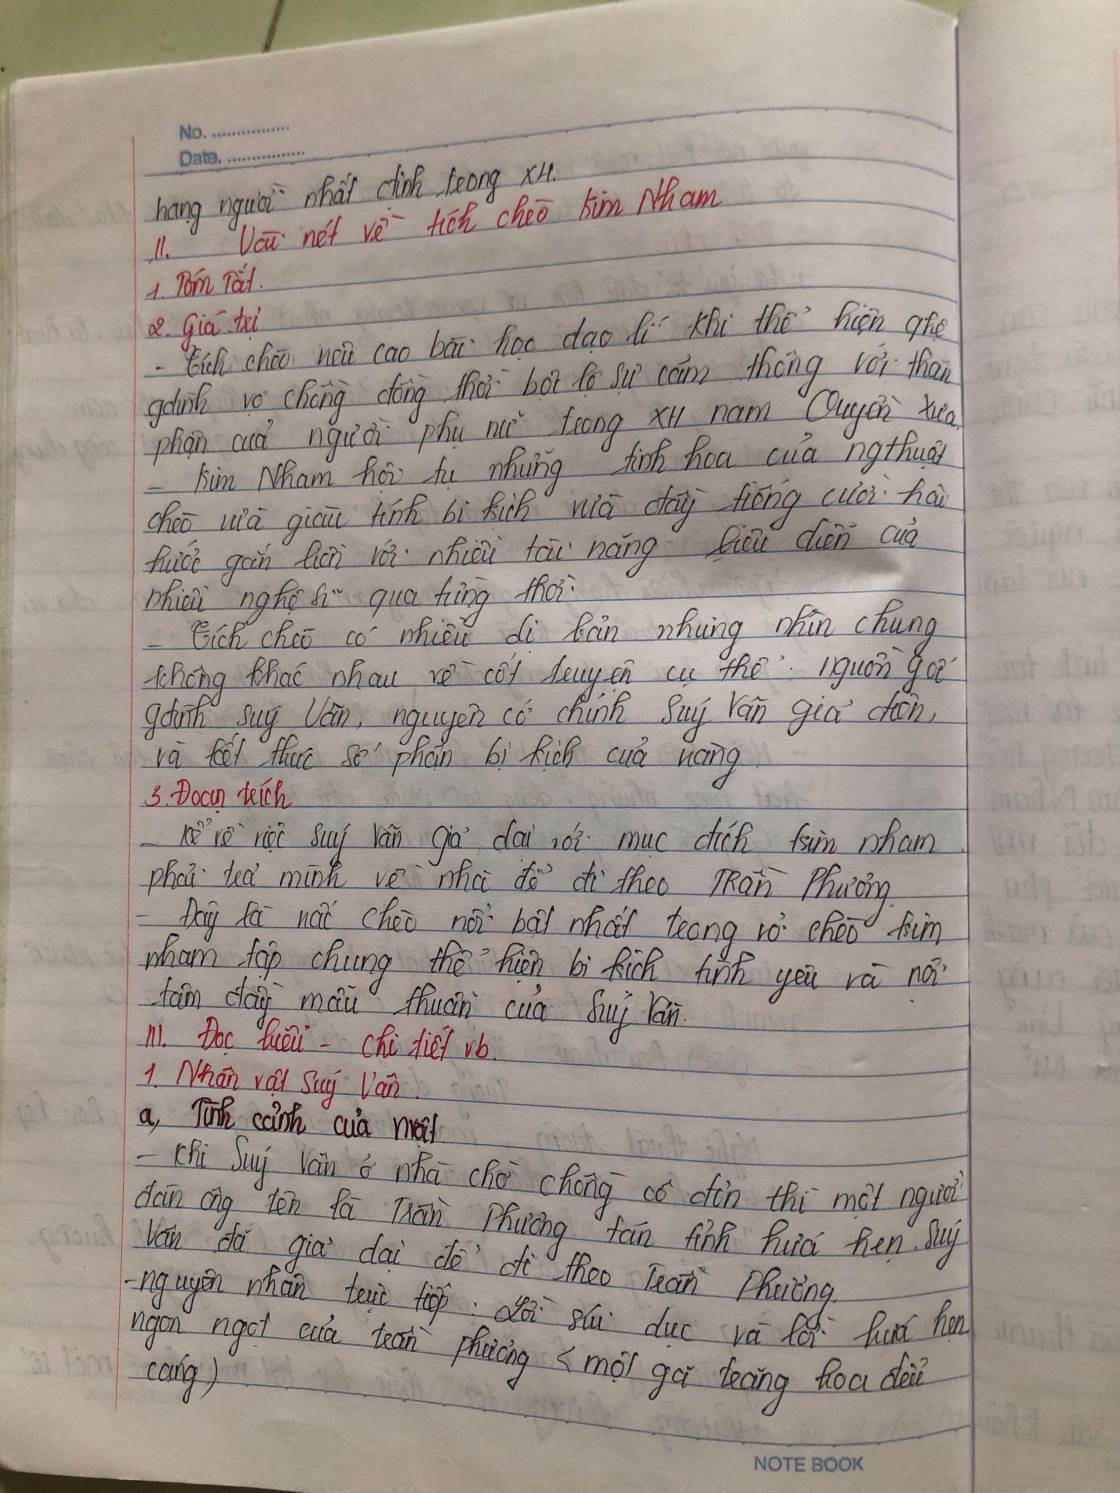 No. ................
Date. ................
hạng người nhất định trong XH.
II. Vài nét về tích chèo Kim Nham
1. Tóm Tắt.
2. Giá trị
- Tích chèo nêu cao bài học đạo lí khi thể hiện qhệ
gđình vợ chồng đồng thời bột lộ sự cảm thông với thân
phận của người phụ nữ trong XH nam Quyền xưa
- Kim Nham hội tụ những tinh hoa của ngthuật
chèo vừa giàu tính bi kịch vừa đầy tiếng cười hài
hước gắn liền với nhiều tài năng biểu diễn của
nhiều nghệ sĩ qua từng thời.
- Tích chèo có nhiều dị bản nhưng nhìn chung
không khác nhau về cốt truyện cụ thể: nguồn gốc
gđình Suý Vân, nguyên cớ chính Suý Vân giả điên,
và kết thúc số phận bị kịch của nàng
3. Đoạn trích
- Kể về việc Suý Vân giả dại với mục đích kim nham
phải trả mình về nhà để đi theo TRần Phương.
- Đây là nấc chèo nổi bật nhất trong vở chèo kim
nham tập chung thể hiện bi kịch tình yêu và nội
tâm đầy mâu thuẫn của Suý Vân.
III. Đọc hiểu - chi tiết vb.
1. Nhân vật Suý Vân.
a, Tình cảnh của
- Khi Suý Vân ở nhà chờ chồng cô đơn thì một người
đàn ông tên là Trần Phương tán tỉnh hứa hẹn. Suý
Vân đã giả dại để đi theo Trần Phương.
- nguyên nhân trực tiếp: Lời sui dục và lời hứa hẹn
ngon ngọt của trần phương < một gã trăng hoa đểu
cáng)
NOTE BOOK